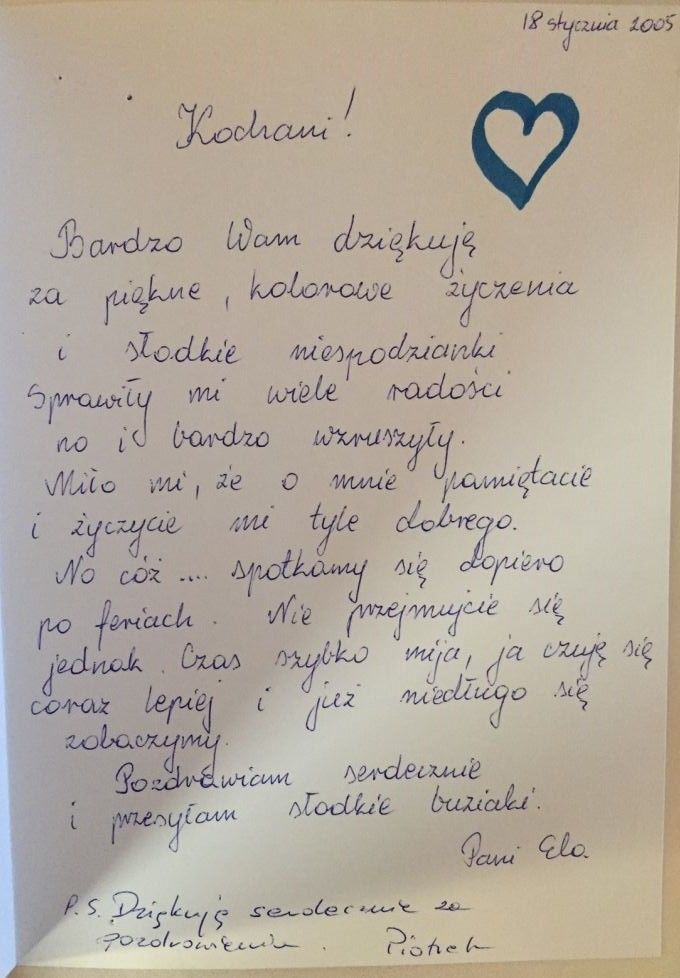 18 stycznia 2005
Kochani!
Bardzo Wam dziękuję
za piękne, kolorowe życzenia
i słodkie niespodzianki
Sprawiły mi wiele radości
no i bardzo wzruszyły.
Miło mi, że o mnie pamiętacie
i życzycie mi tyle dobrego.
No cóż .... spotkamy się dopiero
po feriach. Nie przejmujcie się
jednak. Czas szybko mija, ja czuję się
coraz lepiej i już niedługo się
zobaczymy.
Pozdrawiam serdecznie
i przesyłam słodkie buziaki.
Pani Ela.
P.S. Dziękuję serdecznie za
pozdrowienia. Piotrek